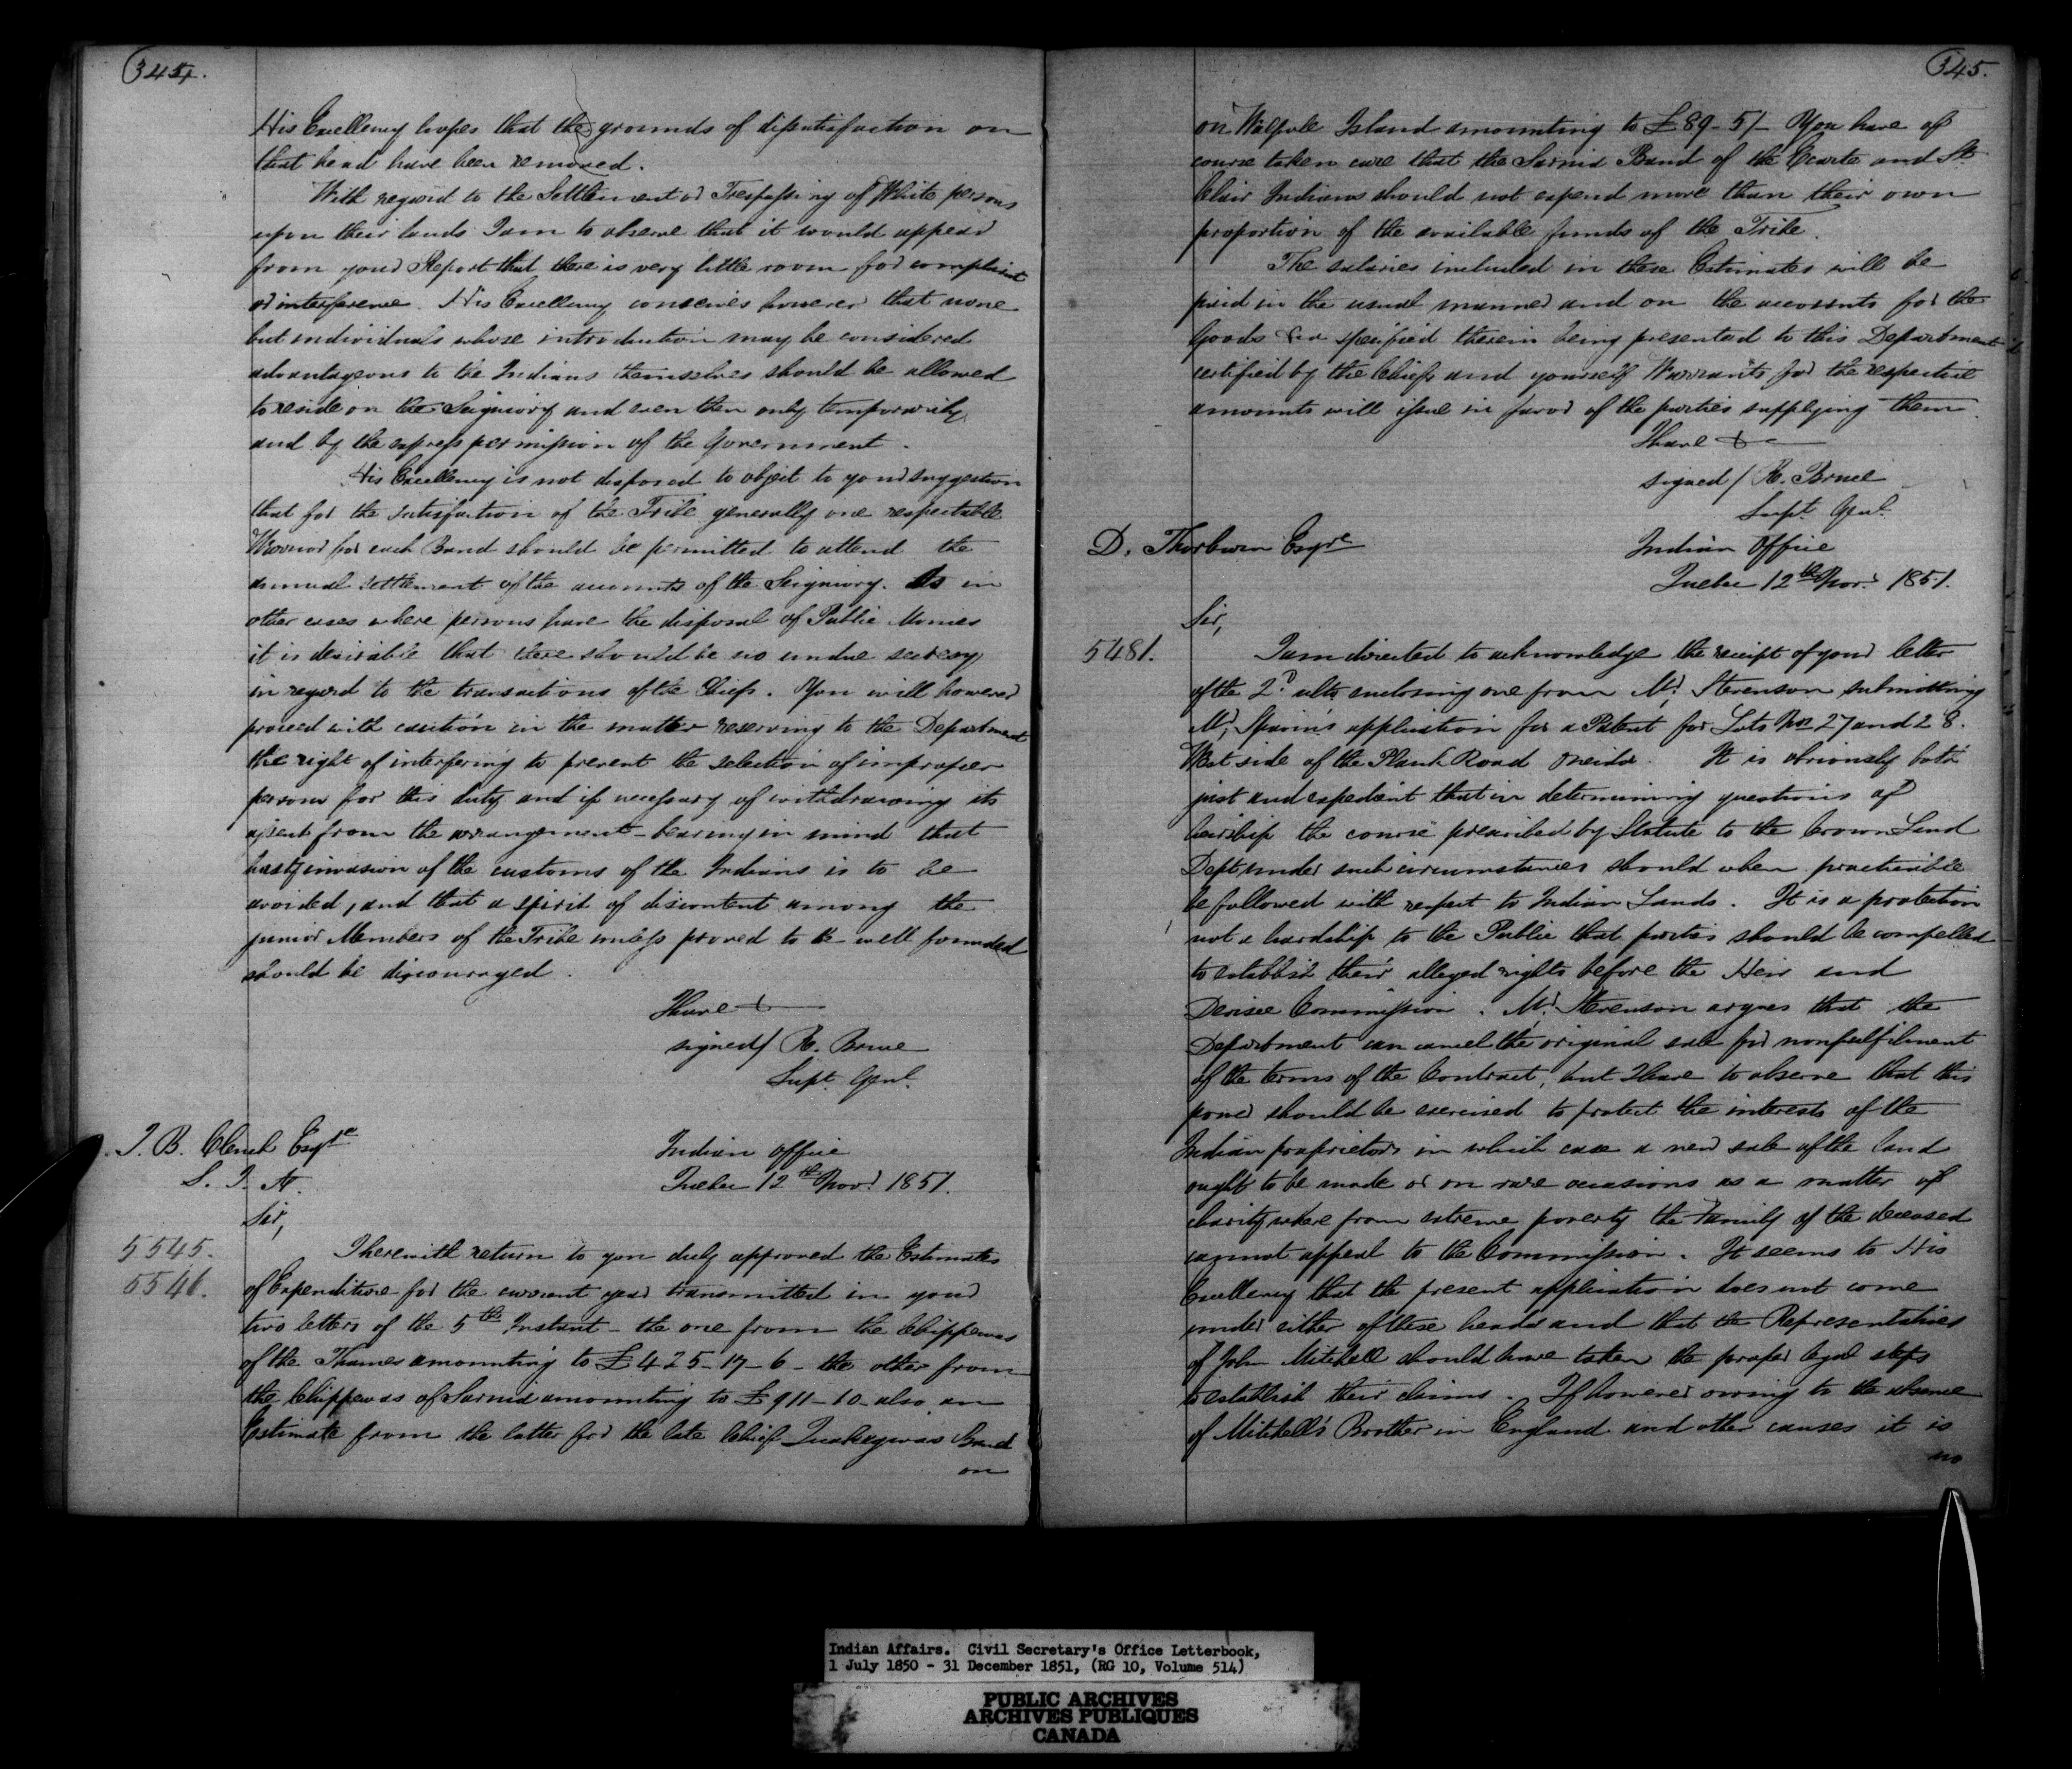 344.
His Excellency hopes that the grounds of dissatisfaction on
that head have been removed.
With regard to the Settlement or Trespassing of White persons
upon their lands I am to observe that it would appear
from your Report that there is very little room for complaint
or interference. His Excellency conceives however that none
but individuals whose introduction may be considered
advantageous to the Indians themselves should be allowed
to reside on the Seigniory and even then only temporarily
and by the express permission of the Government.
His Excellency is not disposed to object to your suggestion
that for the satisfaction of the Tribe generally one respectable
Warrior for each Band should be permitted to attend the
annual settlement of the accounts of the Seigniory. As in
other cases where persons have the disposal of Public Monies
it is desirable that there should be no undue secrecy
in regard to the transactions of the Chiefs. You will however
proceed with caution in the matter reserving to the Department
the right of interfering to prevent the selection of improper
persons for this duty and if necessary of withdrawing its
assent from the arrangement - bearing in mind that
hasty invasion of the customs of the Indians is to be
avoided, and that a spirit of discontent among the
junior Members of the Tribe unless proved to be well founded
should be discouraged.
I have &
signed/ R. Bruce
Supt. Genl.
J. B. Clench Esqre
S. I. A.
Indian Office
Quebec 12th Novr. 1851.
Sir,
5545.
5546.
I herewith return to you duly approved the Estimates
of Expenditure for the current year transmitted in your
two letters of the 5th Instant - the one from the Chippewas
of the Thames amounting to £425-17-6 - the other from
the Chippewas of Sarnia amounting to £911-10- also an
Estimate from the latter for the late Chief Quakegwas Band
on
345.
on Walpole Island amounting to £89-5/- You have of
course taken care that the Sarnia Band of the Ecarte and St.
Clair Indians should not expend more than their own
proportion of the available funds of the Tribe.
The salaries included in these Estimates will be
paid in the usual manner and on the accounts for the
Goods &ca specified therein being presented to this Department
certified by the Chiefs and yourself Warrants for the respective
amounts will issue in favor of the parties supplying them.
I have &
signed/ R. Bruce
Supt. Genl.
D. Thorburn Esqre
Indian Office
Quebec 12th Novr. 1851.
Sir,
5481.
I am directed to acknowledge the receipt of your letter
of the 2d. ulto enclosing one from Mr. Stevenson submitting
Mr. application for a Patent for Lots Nos 27 and 28.
West side of the Plank Road Oneida. It is obviously both
just and expedient that in determining questions of
heirship the course prescribed by Statute to the Crown Land
Dept under such circumstances should when practicable
be followed with respect to Indian Lands. It is a protection
not a hardship to the Public that parties should be compelled
to establish their alleged rights before the Heir and
Devisee Commission. Mr. Stevenson argues that the
Department can cancel the original sale for nonfulfilment
of the terms of the Contract, but I have to observe that this
power should be exercised to protect the interests of the
Indian proprietors in which case a new sale of the land
ought to be made or on rare occasions as a matter of
charity where from extreme poverty the family of the deceased
cannot appeal to the Commission. It seems to His
Excellency that the present application does not come
under either of these heads and that the Representatives
of John Mitchell should have taken the proper legal steps
to establish their claims. If however owing to the absence
of Mitchell's Brother in England and other causes it is
no
Indian Affairs. Civil Secretary's Office Letterbook,
1 July 1850 - 31 December 1851, (RG 10, Volume 514)
PUBLIC ARCHIVES
ARCHIVES PUBLIQUES
CANADA